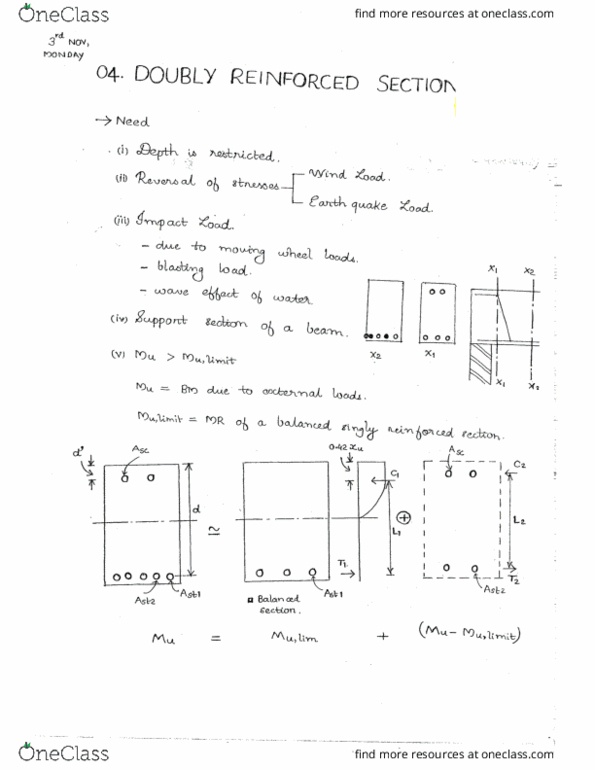 OneClass
find more resources at oneclass.com
3rd NOV,
MONDAY
04. DOUBLY REINFORCED SECTION
→ Need
(i) Depth is restricted.
(ii) Reversal of stresses
Wind Load.
Earth quake Load.
(iii) Impact Load.
- due to moving wheel loads.
- blasting load.
- wave effect of water
(iv) Support section of a beam.
X2
X1
X1
X2
X1
X2
(v) Mu > Mu,limit
Mu = BM due to external loads.
Mu,limit = MR of a balanced singly reinforced section.
d'
Asc
d
Ast2
Ast1
≃
0.42 xu
C1
L1
T1
Ast1
Balanced
section.
⊕
Asc
C2
L2
T2
Ast2
Mu = Mu,lim + (Mu - Mu,limit)
OneClass
find more resources at oneclass.com